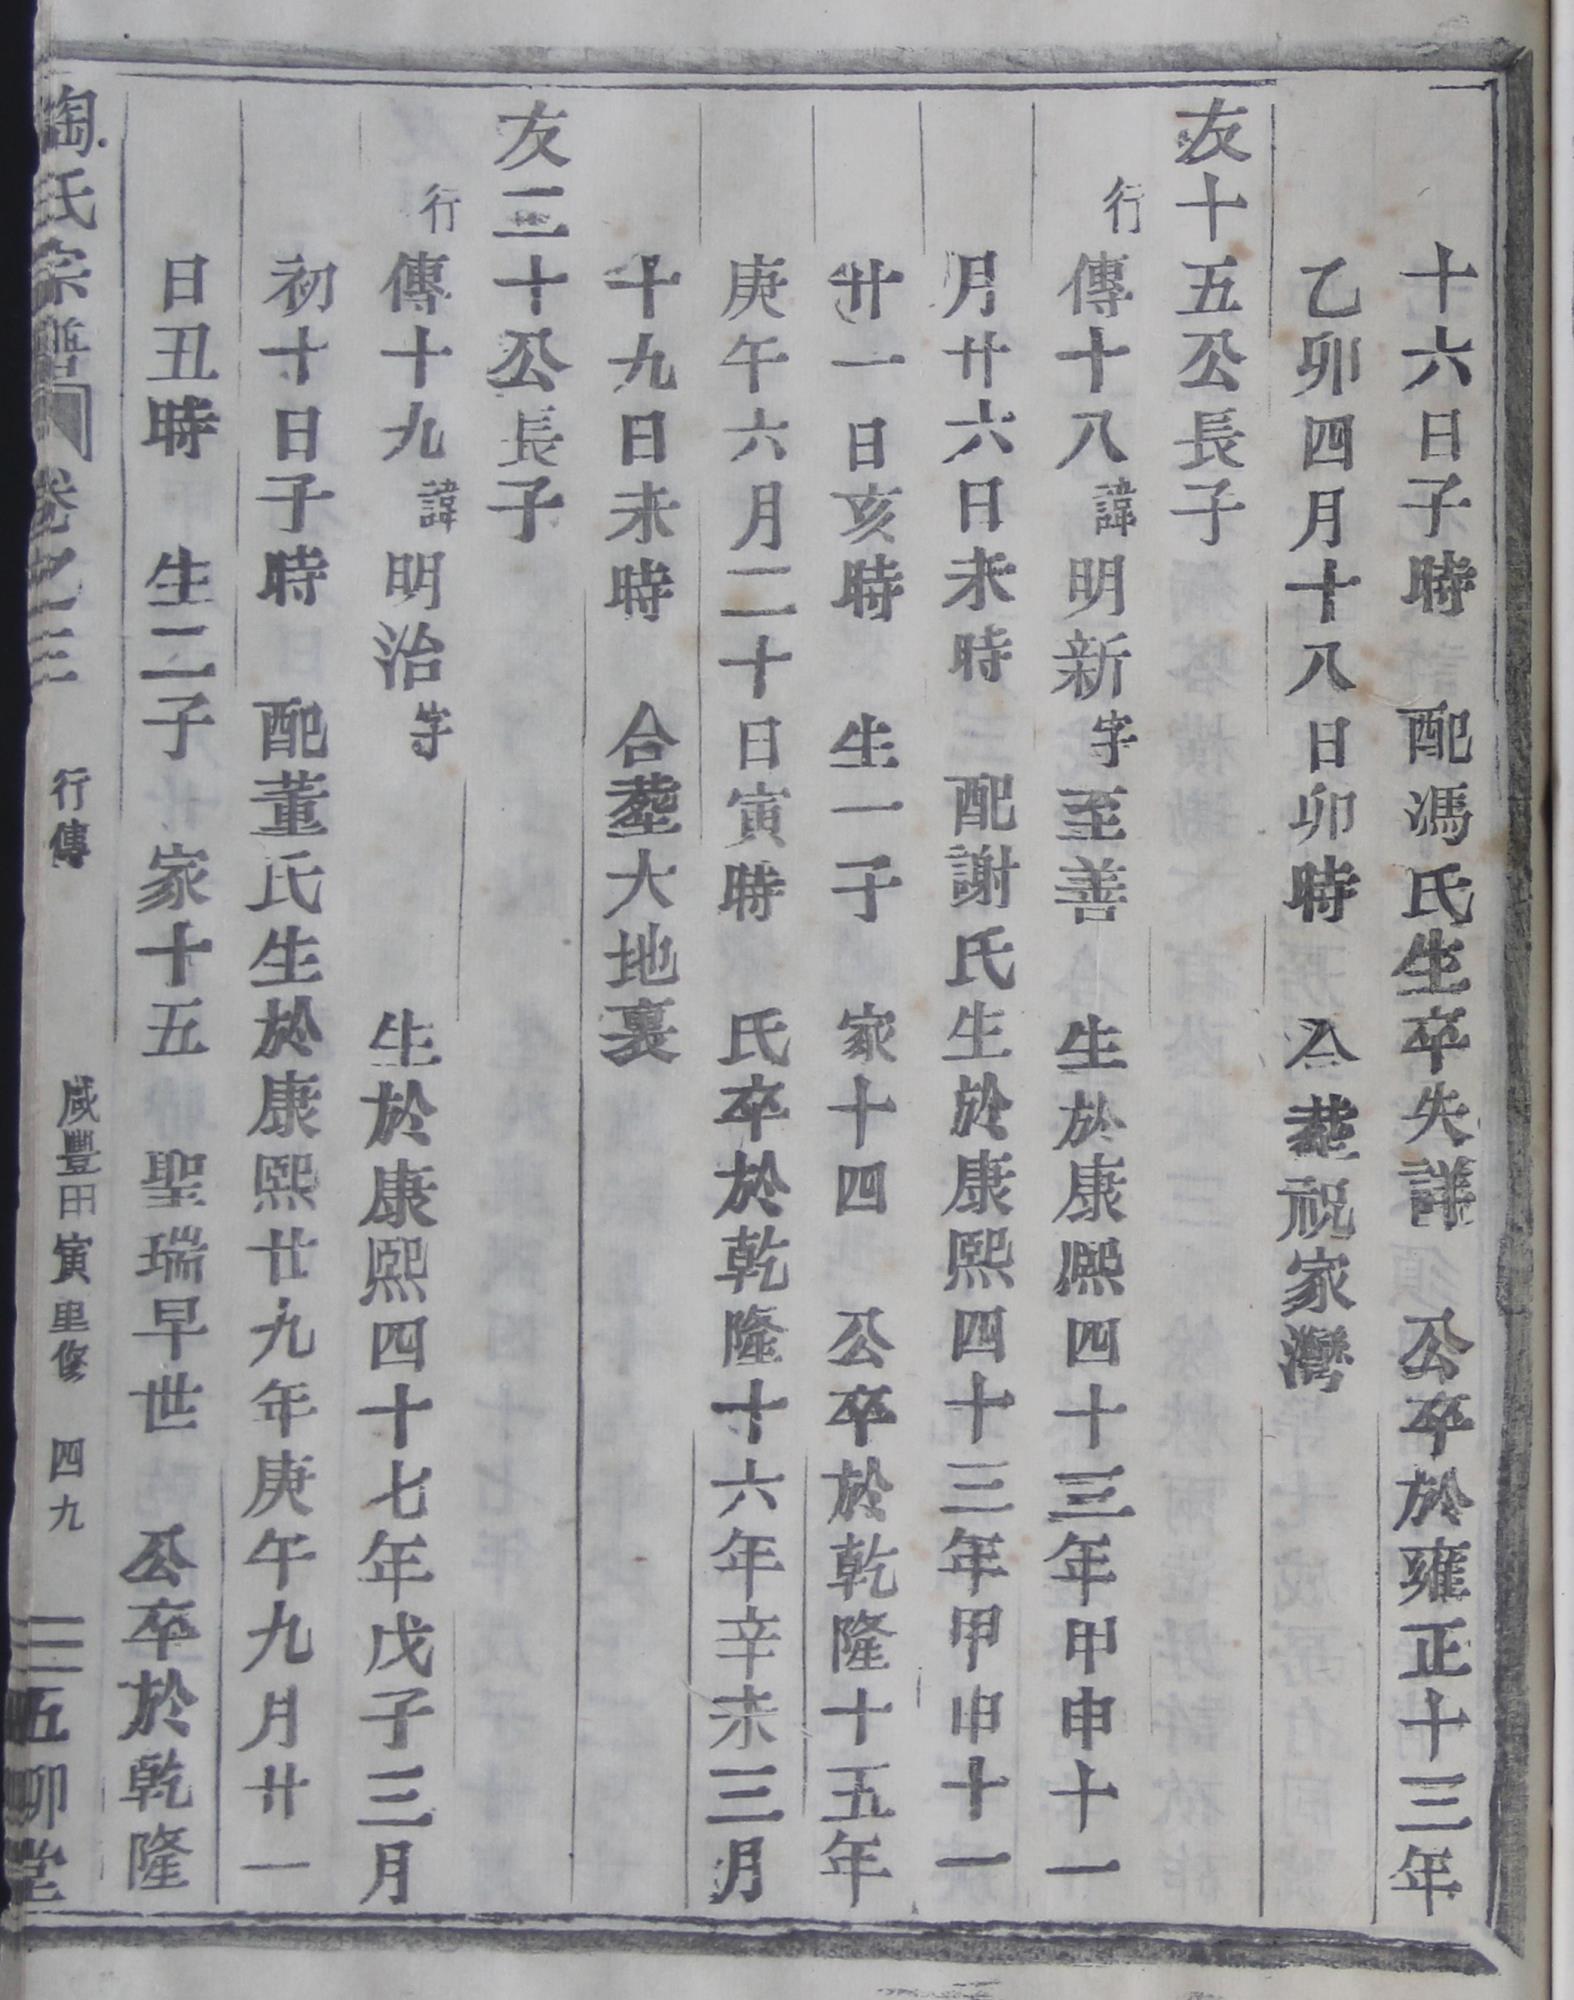 十六日子時　配馮氏生卒失詳　公卒於雍正十三年
乙卯四月十八日卯時　合葬祝家灣
友十五公長子
行傳十八諱明新字至善　生於康熙四十三年甲申十一
月廿六日未時　配謝氏生於康熙四十三年甲申十一
廿一日亥時　生一子　家十四　公卒於乾隆十五年
庚午六月二十日寅時　氏卒於乾隆十六年辛未三月
十九日未時　合葬大地裏
友三十公長子
行傳十九諱明治字　生於康熙四十七年戊子三月
初十日子時　配董氏生於康熙廿九年庚午九月廿一
日丑時　生二子　家十五　聖瑞早世　公卒於乾隆
陶氏宗譜　卷之三　行傳　咸豐甲寅重修　四九　五柳堂